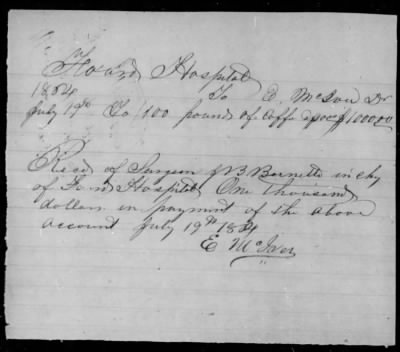 Howard Hospital
To E. McIver Dr
1864
July 19th To 100 pounds of Coffe $1000.00
Recd of Surgeon J B Barnett in chg
of Hospital One thousand
dollars in payment of the above
account July 19th 1864
E McIver